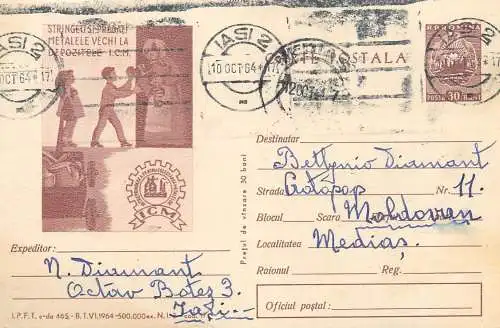 STRÎNGEȚI ȘI PREDAȚI
METALELE VECHI LA
DEPOZITELE I.C.M.
IAȘI 2
10 OCT 64 17
IAȘI 2
10 OCT 64 17
12 OCT 64
STALA
POSTA 30 BANI
ICM
Destinatar
Bettynio Diamant
Strada Protopop Nr. 11.
Blocul Scara Moldovan
Localitatea Mediaș,
Raionul Reg.
Oficiul poștal:
Prețul de vînzare 30 bani
Expeditor:
N. Diamant
Octav Botez 3.
Iași.
I.P.F.T. c-da 465 - B.T. VI. 1964 - 500.000 ex.